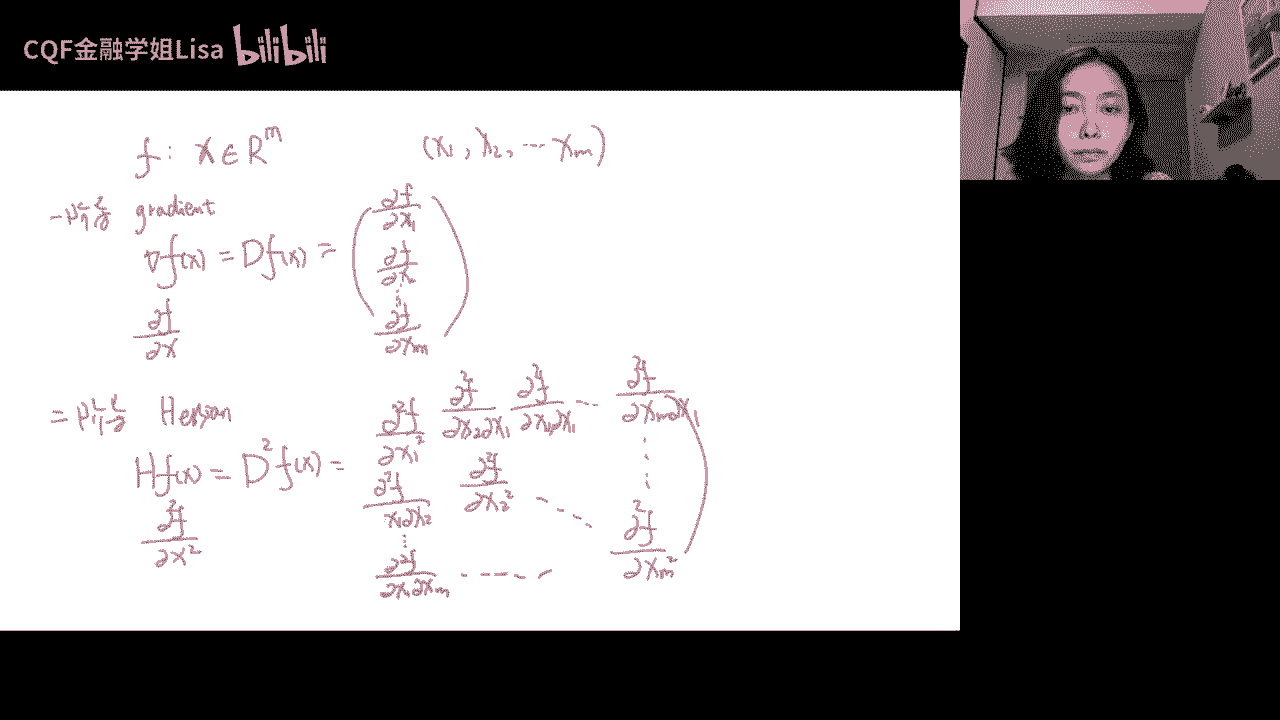 CQF金融学姐Lisa bilibili
f: x ∈ R^m (x₁, x₂, ⋯ xₘ)
一阶 gradient
∇f(x) = Df(x) = (∂f/∂x₁ ∂f/∂x ⋮ ∂f/∂xₘ)
∂f/∂x
二阶 Hessian
Hf(x) = D²f(x) =
∂²f/∂x₁² ∂²f/∂x₂∂x₁ ∂²f/∂x₁∂x₁ ⋯ ∂²f/∂xₘ∂x₁
∂²f/x₁∂x₂ ∂²f/∂x₂² ⋯ ⋮
∂²f/∂x²
⋮
∂²f/∂x₁∂xₘ ⋯ ∂²f/∂xₘ²